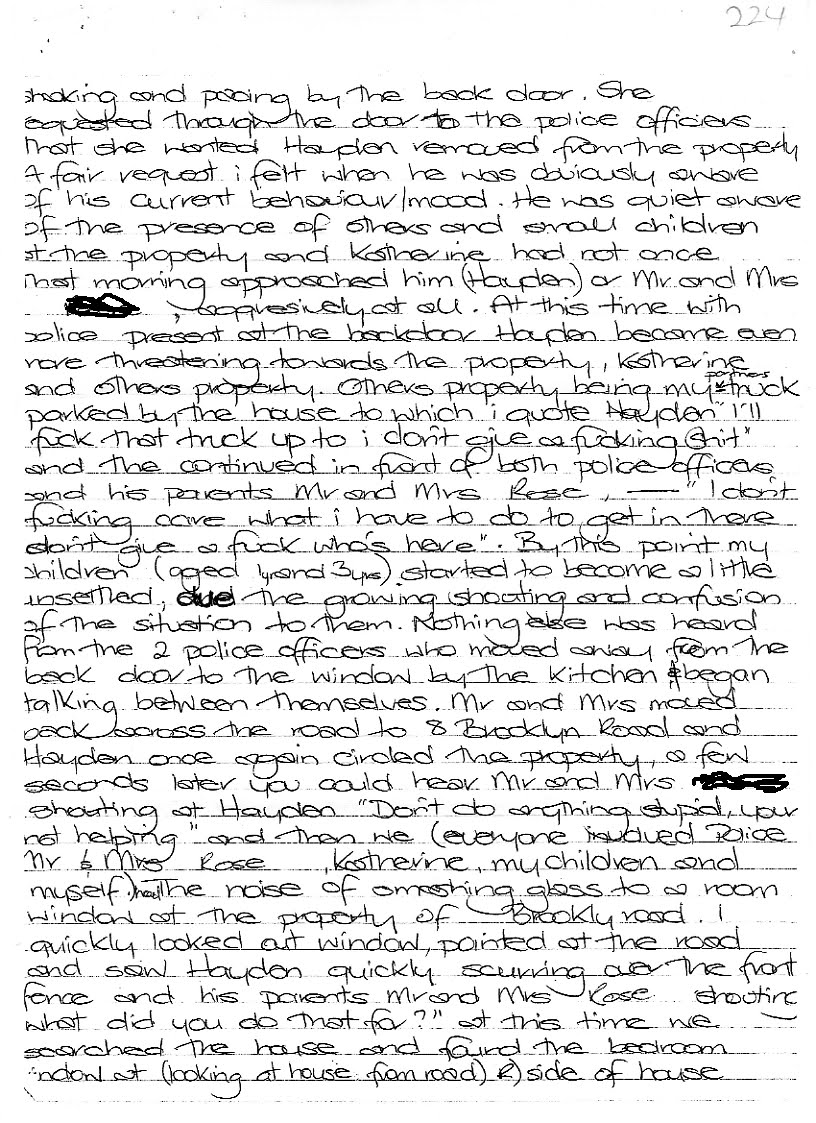 224
shaking and pacing by the back door. She
equested through the door to the police officiers
That she wanted Hayden removed from the property
A fair request i felt when he was obviously aware
of his current behaviour/mood. He was quiet aware
of the presence of others and small children
at the property and Katherine had not once
that morning approached him (Hayden) or Mr and Mrs
, aggresively at all. At this time with
police present at the backdoor Hayden became even
more threatening towards the property, Katherine
and others property. Others property being my partners truck
parked by the house to which i quote Hayden "I'll
fuck that truck up to i don't give a fucking shit"
and the continued in front of both police officers
and his parents Mr and Mrs Rose, — "I don't
fucking care what i have to do to get in there
don't give a fuck who's here". By this point my
children (aged 1yr and 3yrs) started to become a little
unsettled, due the growing shouting and confusion
of the situation to them. Nothing else was heard
from the 2 police officers who moved away from the
back door to the window by the kitchen & began
talking between themselves. Mr and Mrs moved
back across the road to 8 Brooklyn Road and
Hayden once again circled the property, a few
seconds later you could hear Mr and Mrs
shouting at Hayden "Don't do anything stupid, your
not helping" and then we (everyone involved Police
Mr & Mrs Rose, Katherine, my children and
myself) heard the noise of smashing glass to a room
window at the property of Brookly road. I
quickly looked out window, pointed at the road
and saw Hayden quickly scurring over the front
fence and his parents Mr and Mrs Rose shouting
what did you do that for?" at this time we
searched the house and found the bedroom
indow at (looking at house from road) R) side of house